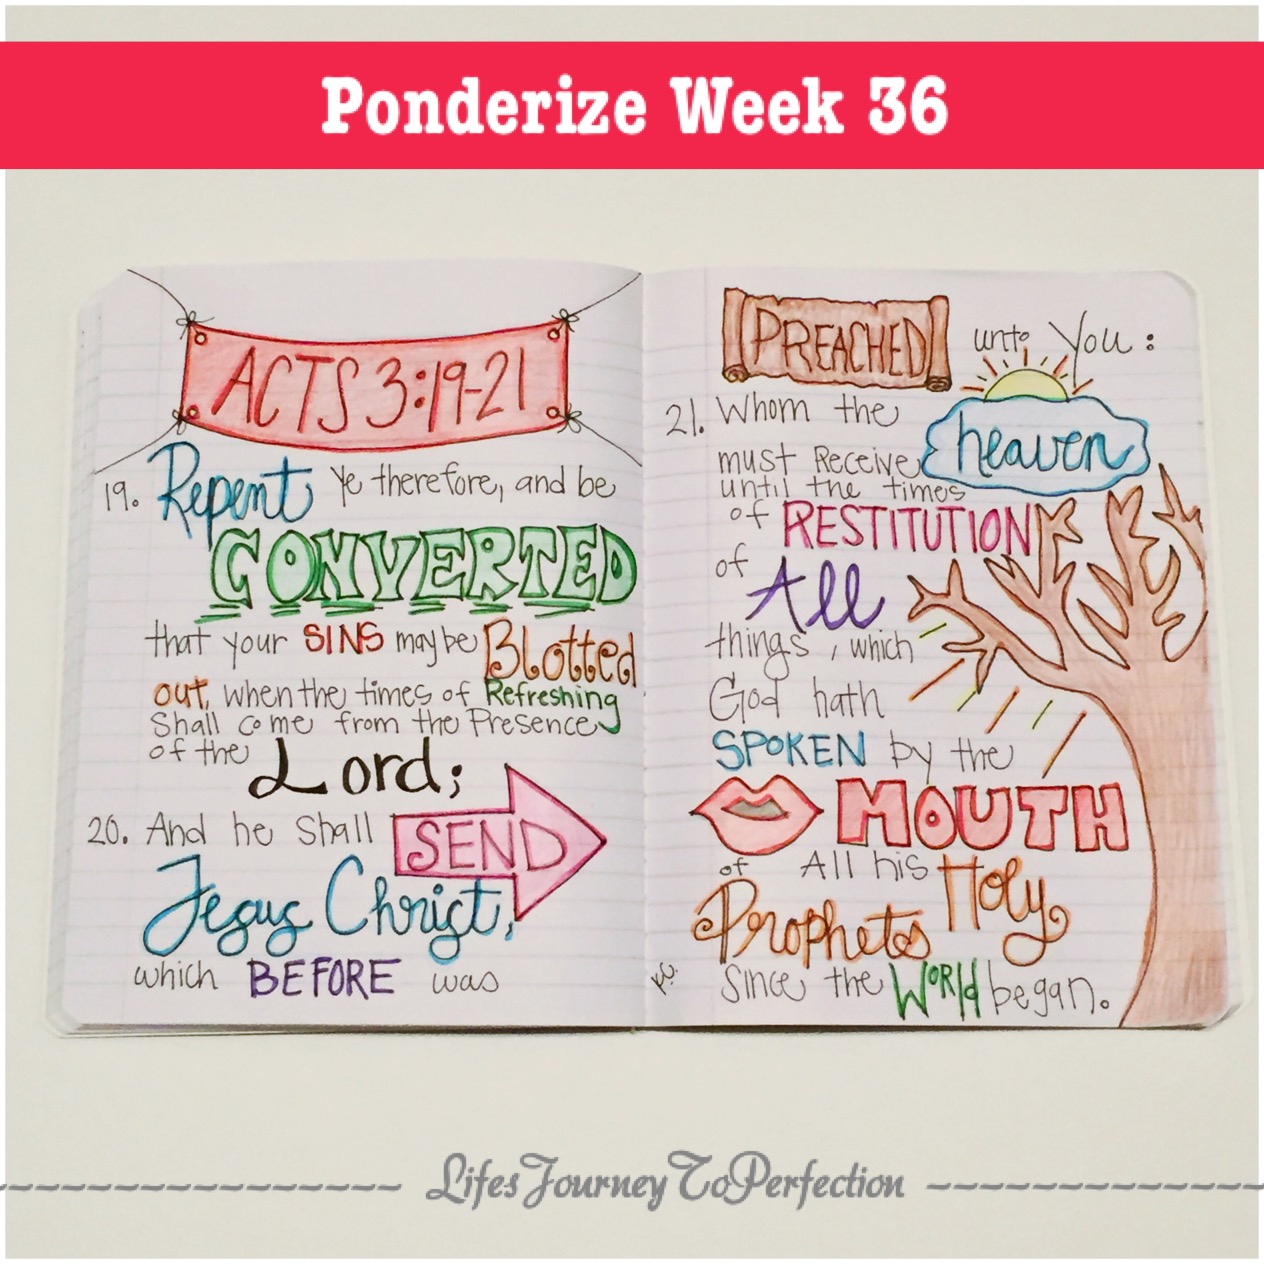 Ponderize Week 36
ACTS 3:19-21
19. Repent Ye therefore, and be
CONVERTED
that your SINS may be Blotted
out, when the times of Refreshing
Shall come from the Presence
of the Lord;
20. And he Shall SEND
Jesus Christ,
which BEFORE was
PREACHED unto You:
21. Whom the heaven
must Receive
until the times
of RESTITUTION
of All
things, which
God hath
SPOKEN by the
MOUTH
of All his Holy
Prophets
Since the World began.
K.C.
LifesJourneyToPerfection